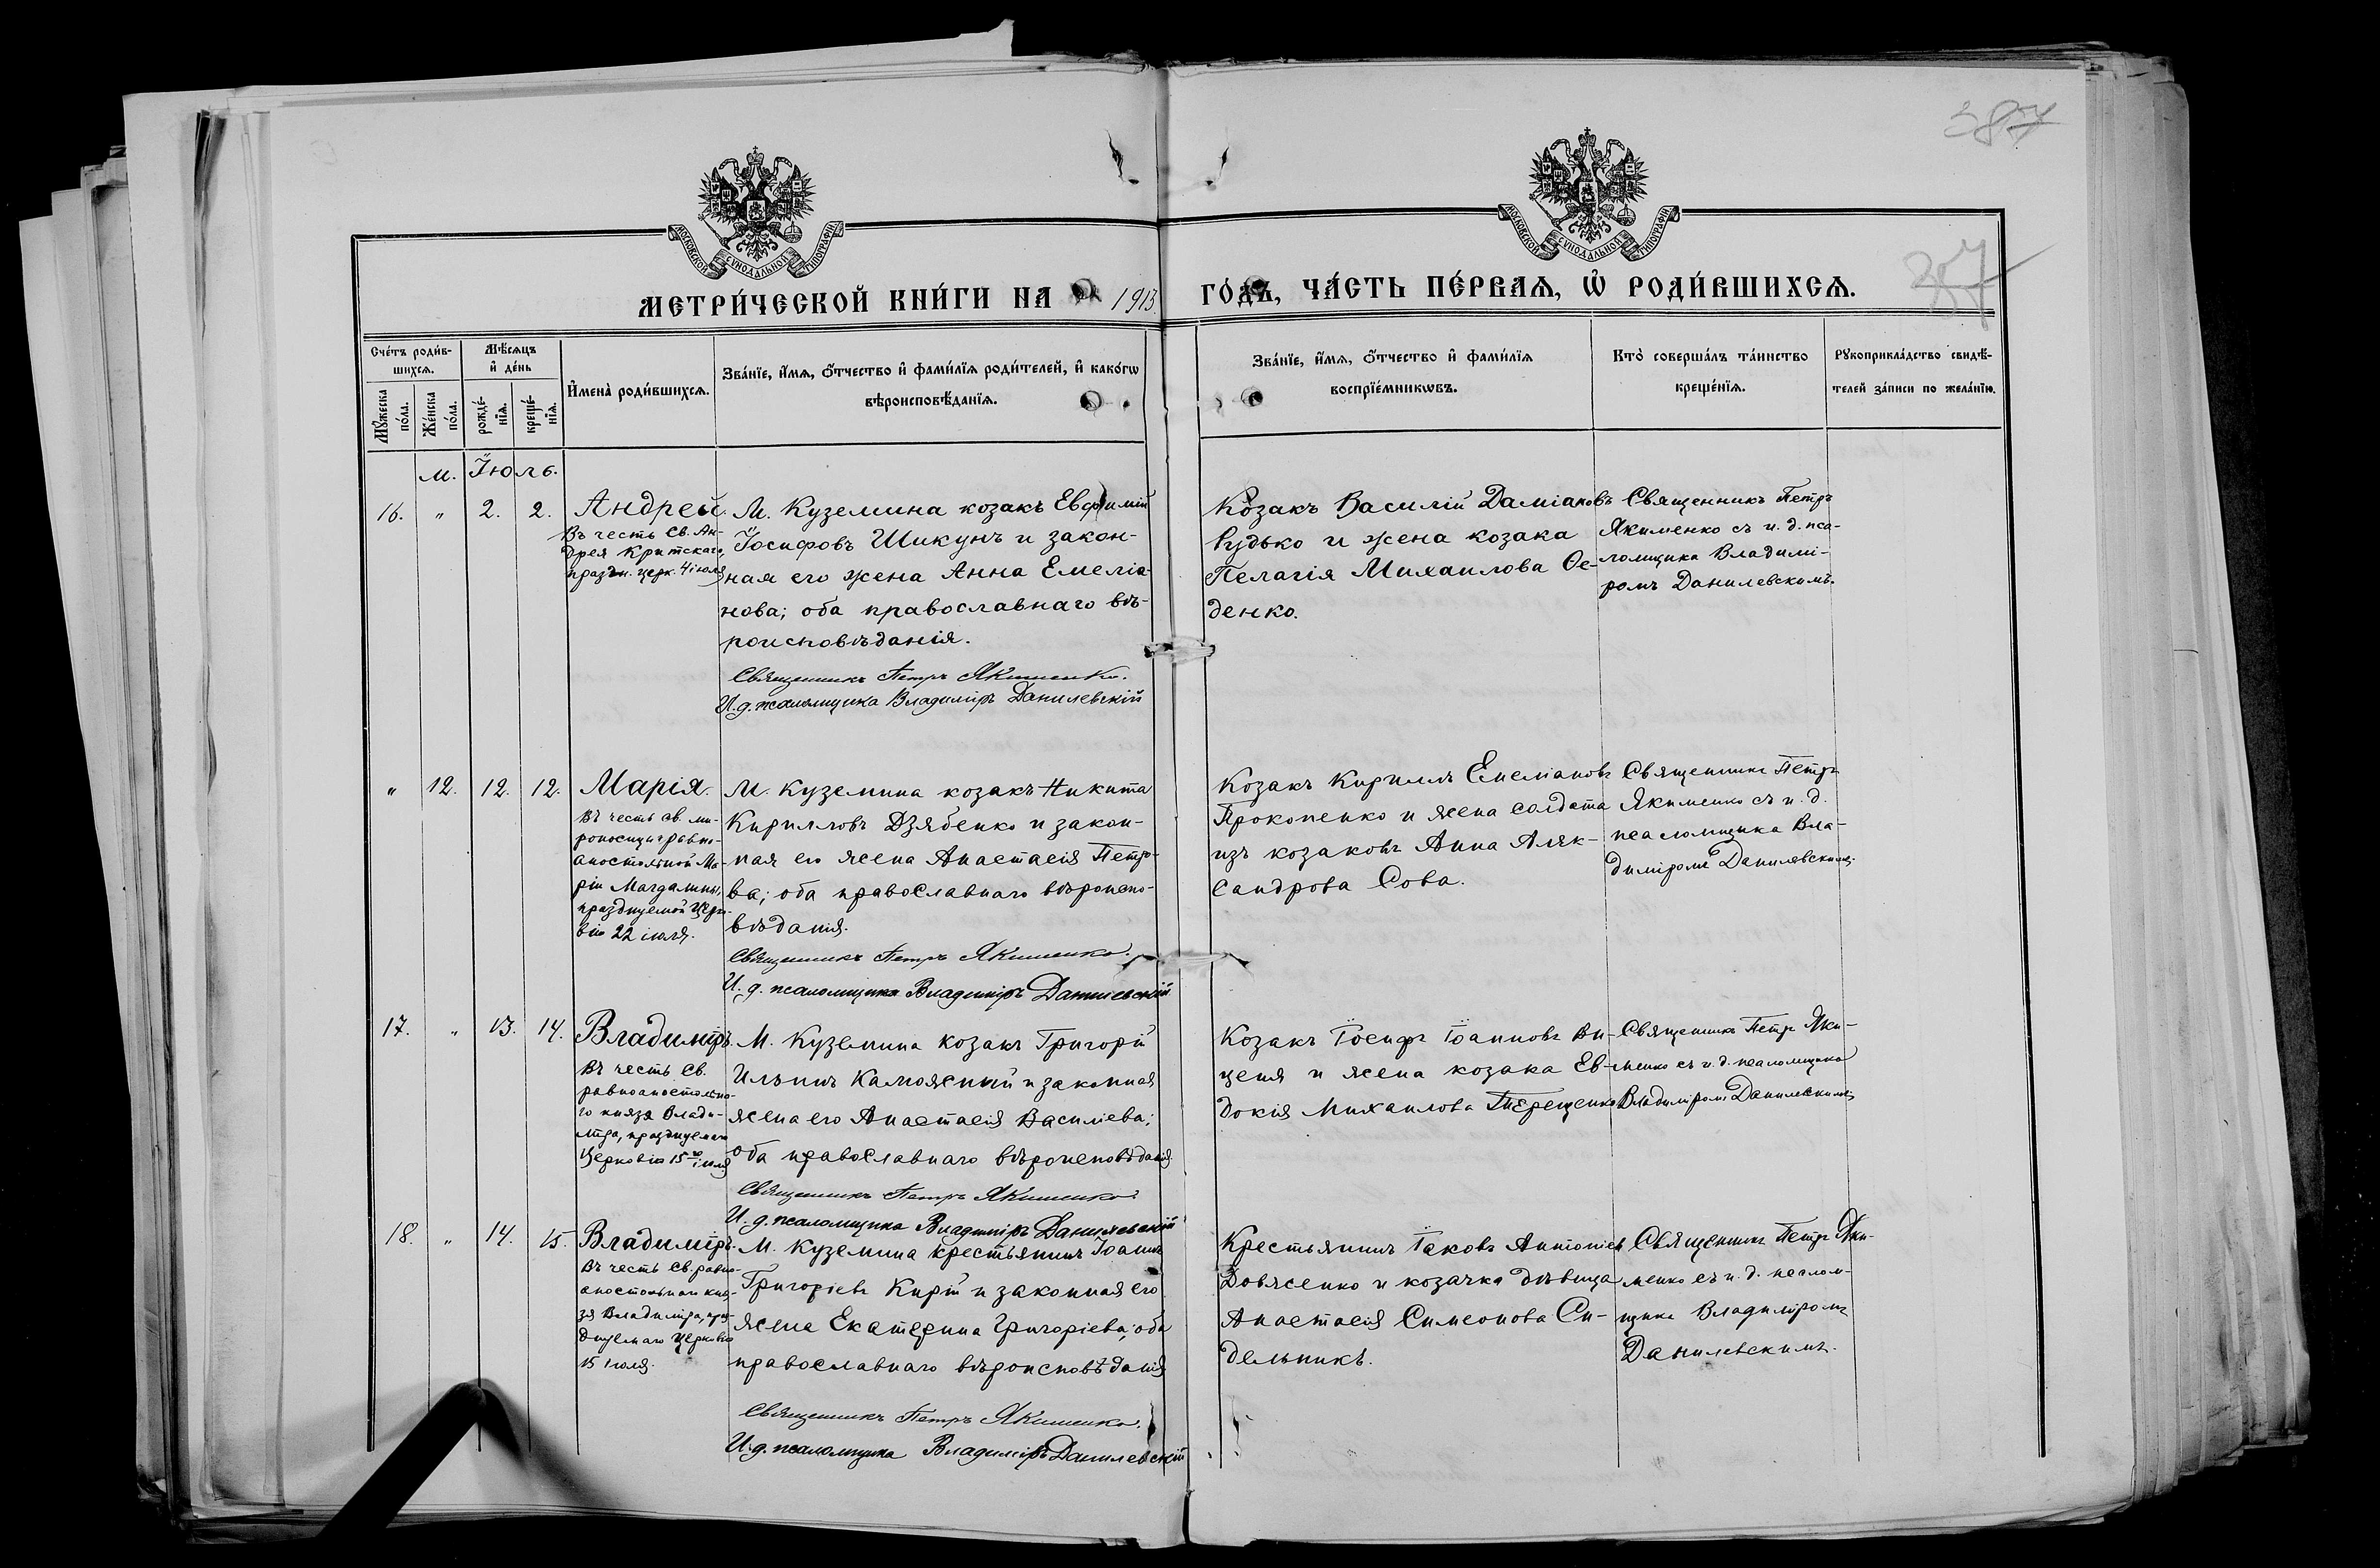 387
МОСКОВСКОЙ СУНОДАЛЬНОЙ ТИПОГРАФІИ
МОСКОВСКОЙ СУНОДАЛЬНОЙ ТИПОГРАФІИ
МЕТРИ́ЧЕСКОЙ КНИ́ГИ НА 1913. ГО́ДЪ, ЧА́СТЬ ПЕ́РВАѦ, Ѡ҆ РОДИ́ВШИХСѦ.
Сче́тъ роди́в-
шихсѧ.
Мꙋ́жеска
по́ла.
Же́нска
по́ла.
Мѣ́сѧцъ
и҆ де́нь
рожде́-
нїѧ.
креще́-
нїѧ.
И҆мена̀ роди́вшихсѧ.
Зва́нїе, и҆́мѧ, ѻ҆́тчество и҆ фами́лїѧ роди́телей, и҆ како́гѡ
вѣроисповѣ́данїѧ.
Зва́нїе, и҆́мѧ, ѻ҆́тчество и҆ фами́лїѧ
воспрїе́мникѡвъ.
Кто̀ соверша́лъ та́инство
креще́нїѧ.
Рꙋкоприкла́дство свидѣ́-
телей за́писи по жела́нїю.
м. Іюль.
16. " 2. 2. Андрей.
Въ честь Св. Ан-
дрея Критскаго,
праздн. церк. 4 іюля
М. Куземина козакъ Евфимій
Іосифовъ Шикунъ и закон-
ная его жена Анна Емеліа-
нова; оба православнаго вѣ-
роисповѣданія.
Священникъ Петръ Якименко.
И. д. псаломщика Владиміръ Данилевскій
Козакъ Василій Даміановъ
Рудько и жена козака
Пелагія Михаилова Ѳе-
денко.
Священникъ Петръ
Якименко съ и. д. пса-
ломщика Владимі-
ромъ Данилевскимъ.
" 12. 12. 12. Марія.
Въ честь св. ми-
роносицы равно-
апостольной Ма-
ріи Магдалины,
празднуемой Церко-
вію 22 іюля.
М. Куземина козакъ Никита
Кирилловъ Дзябенко и закон-
ная его жена Анастасія Петро-
ва; оба православнаго вѣроиспо-
вѣданія.
Священникъ Петръ Якименко.
И. д. псаломщика Владиміръ Данилевскій
Козакъ Кириллъ Емеліановъ
Прокопенко и жена солдата
изъ козаковъ Анна Алек-
сандрова Сова.
Священникъ Петръ
Якименко съ и. д.
псаломщика Вла-
диміромъ Данилевскимъ.
17. " 13. 14. Владиміръ.
Въ честь Св.
равноапостольна-
го князя Влади-
міра, празднуемаго
Церковію 15го іюля
М. Куземина козакъ Григорій
Ильинъ Каможный и законная
жена его Анастасія Василіева;
оба православнаго вѣроисповѣданія.
Священникъ Петръ Якименко.
И. д. псаломщика Владиміръ Данилевскій
Козакъ Іосифъ Іоанновъ Ви-
ценя и жена козака Ев-
докія Михаилова Терещенко
Священникъ Петръ Яки-
менко съ и. д. псаломщика
Владиміромъ Данилевскимъ.
18. " 14. 15. Владиміръ.
Въ честь Св. равно-
апостольнаго кня-
зя Владиміра, праз-
днуемаго Церковію
15 іюля.
М. Куземина крестьянинъ Іоаннъ
Григоріевъ Кирій и законная его
жена Екатерина Григоріева; оба
православнаго вѣроисповѣданія
Священникъ Петръ Якименко.
И. д. псаломщика Владиміръ Данилевскій
Крестьянинъ Іаковъ Антоніевъ
Довженко и козачка дѣвица
Анастасія Симеонова Си-
дельникъ.
Священникъ Петръ Яки-
менко съ и. д. псалом-
щика Владиміромъ
Данилевскимъ.